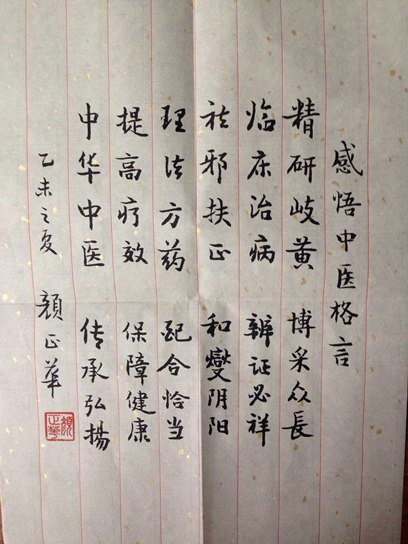 感悟中医格言
精研岐黄 博采众長
临床治病 辨证必祥
祛邪扶正 和燮阴阳
理法方药 配合恰当
提高疗效 保障健康
中华中医 传承弘揚
乙未之夏 颜正華
颜正華